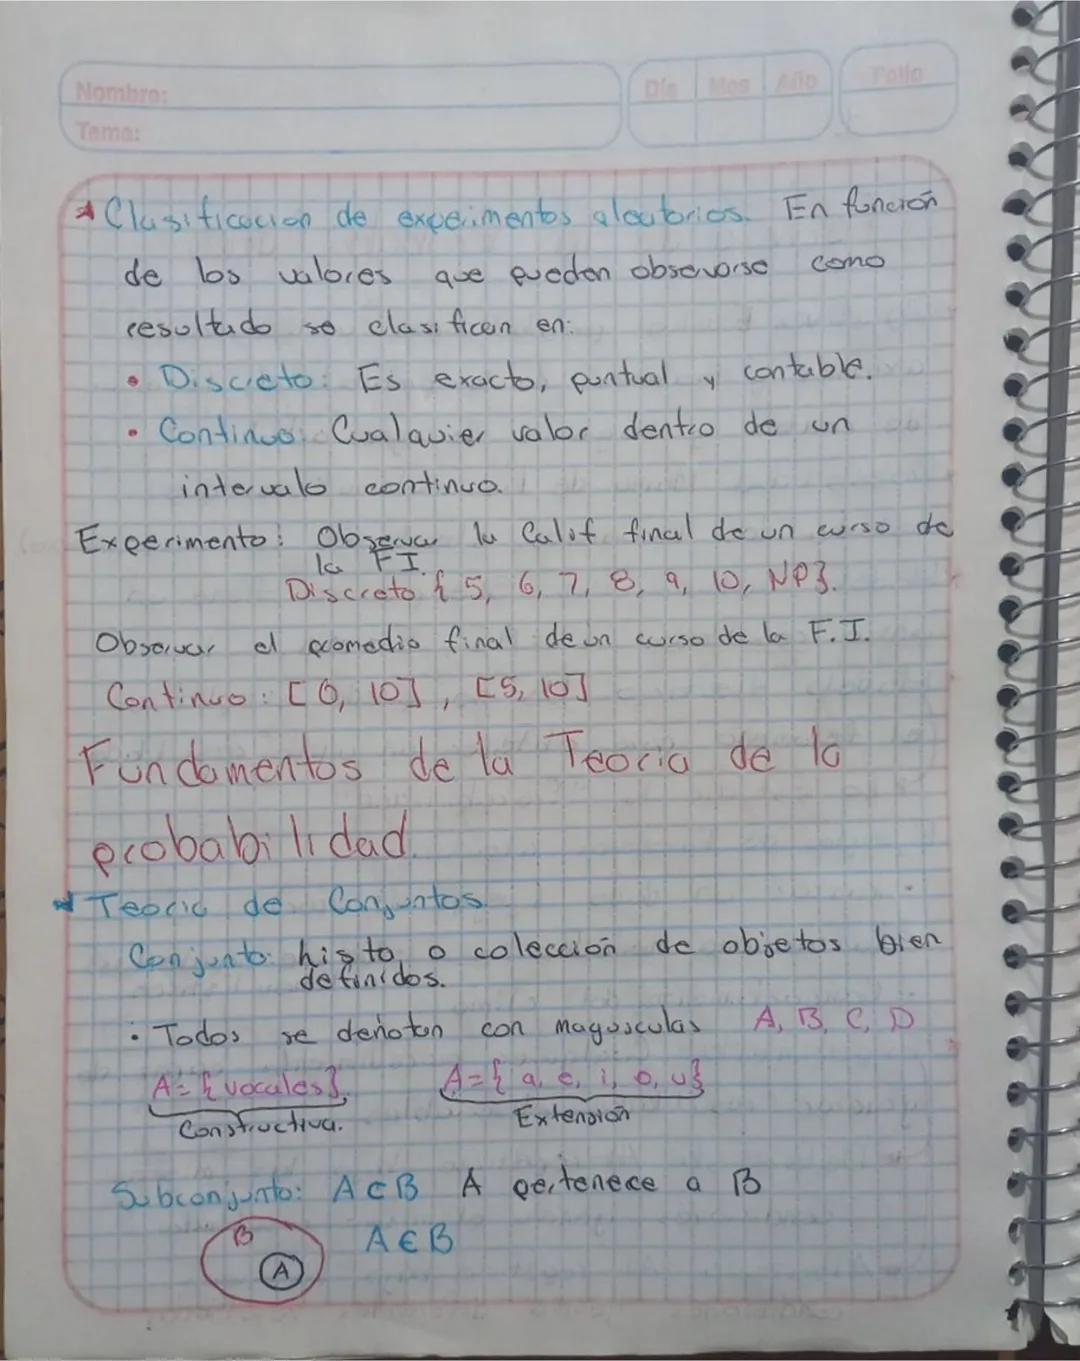 Nombre:
Tema:
Día Mes Año Folio
Clasificacion de experimentos aleatorios. En función
de los valores que pueden observarse como
resultado se clasifican en:
• Discreto: Es exacto, puntual y contable.
• Continuo: Cualquier valor dentro de un
intervalo continuo.
Experimento: Observar la Calif final de un curso de
la F.I.
Discreto { 5, 6, 7, 8, 9, 10, NP}.
Observar el promedio final de un curso de la F.I.
Continuo: [0, 10], [5, 10]
Fundamentos de la Teoria de la
probabilidad.
Teoria de Conjuntos
Conjunto: listo o colección de objetos bien
definidos.
• Todos se denotan con mayusculas A, B, C, D
A={vocales}. A={ a, e, i, o, u}
Constructiva. Extensión
Subconjunto: A⊂B A pertenece a B
B A∈B
A